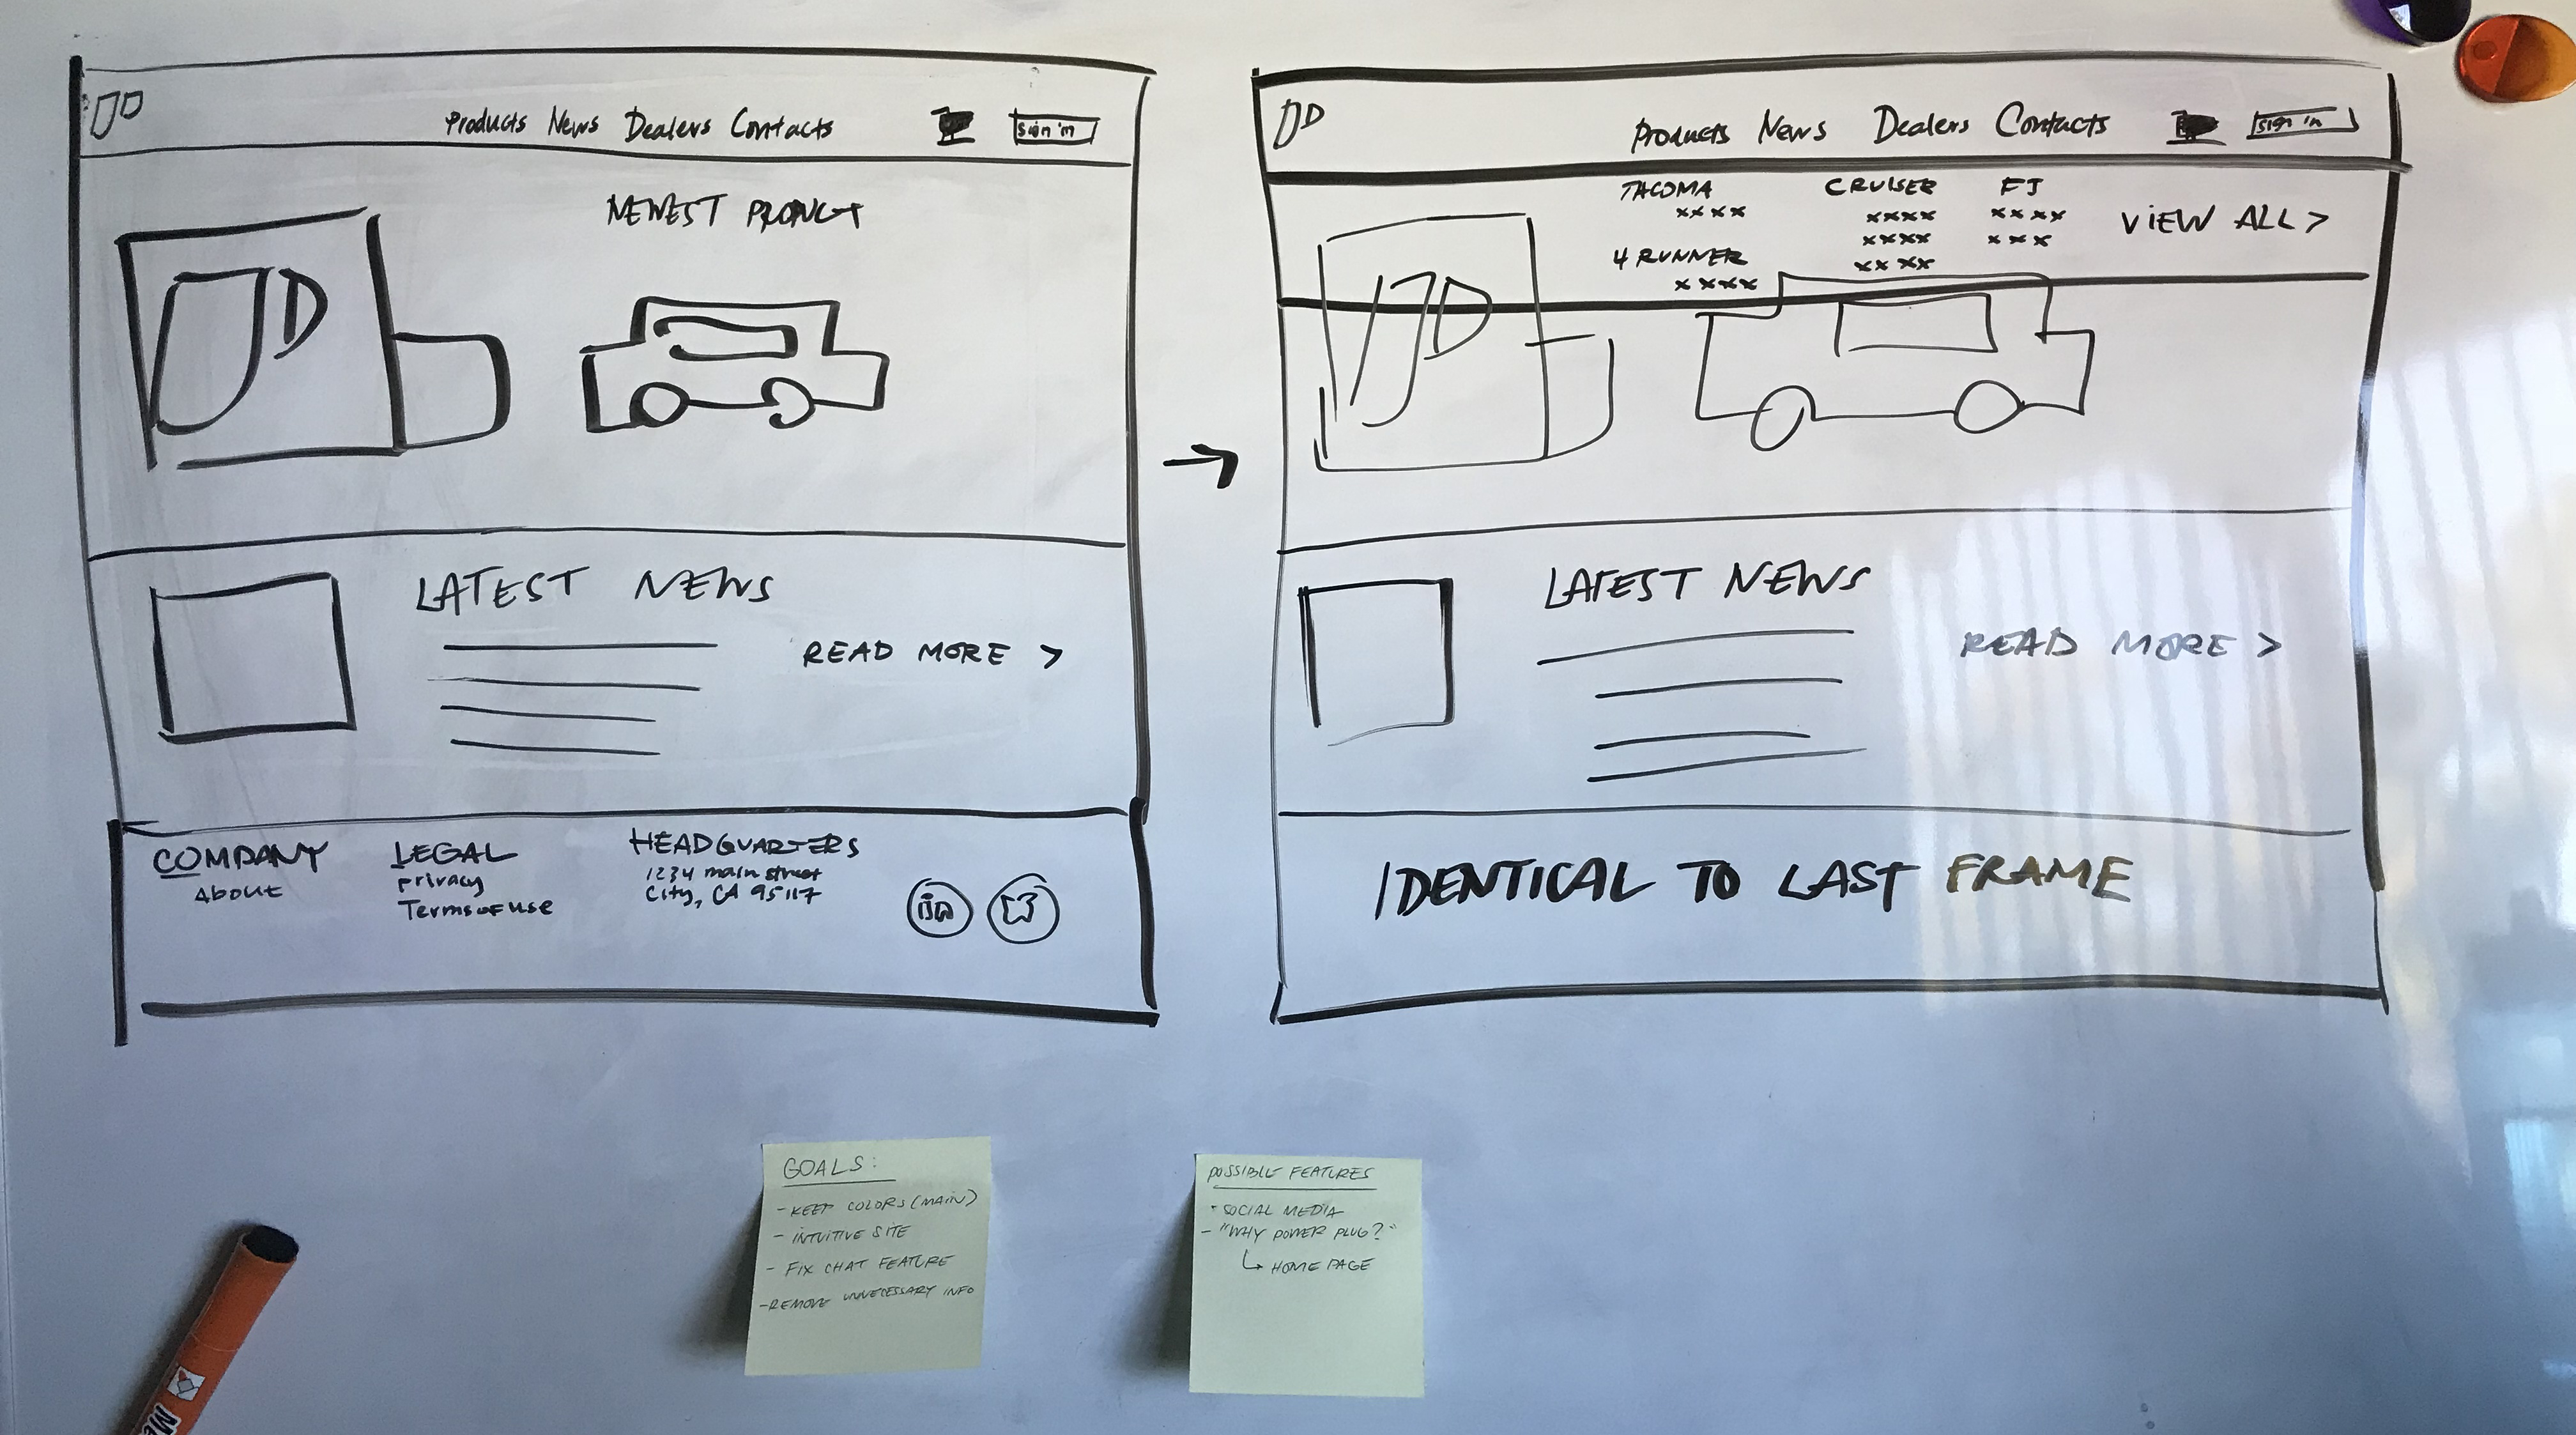 Products News Dealers Contacts
sign in
NEWEST PRODUCT
LATEST NEWS
READ MORE >
COMPANY
About
LEGAL
privacy
Terms of use
HEADQUARTERS
1234 main street
City, CA 95117
in
Products News Dealers Contacts
sign in
TACOMA
xxxx
4 RUNNER
xxxx
CRUISER
xxxx
xxxx
xxxx
FJ
xxxx
xxx
VIEW ALL >
LATEST NEWS
READ MORE >
IDENTICAL TO LAST FRAME
GOALS:
- KEEP COLORS (MAIN)
- INTUITIVE SITE
- FIX CHAT FEATURE
- REMOVE UNNECESSARY INFO
POSSIBLE FEATURES
- SOCIAL MEDIA
- "WHY POWER PLUG?"
↳ HOME PAGE